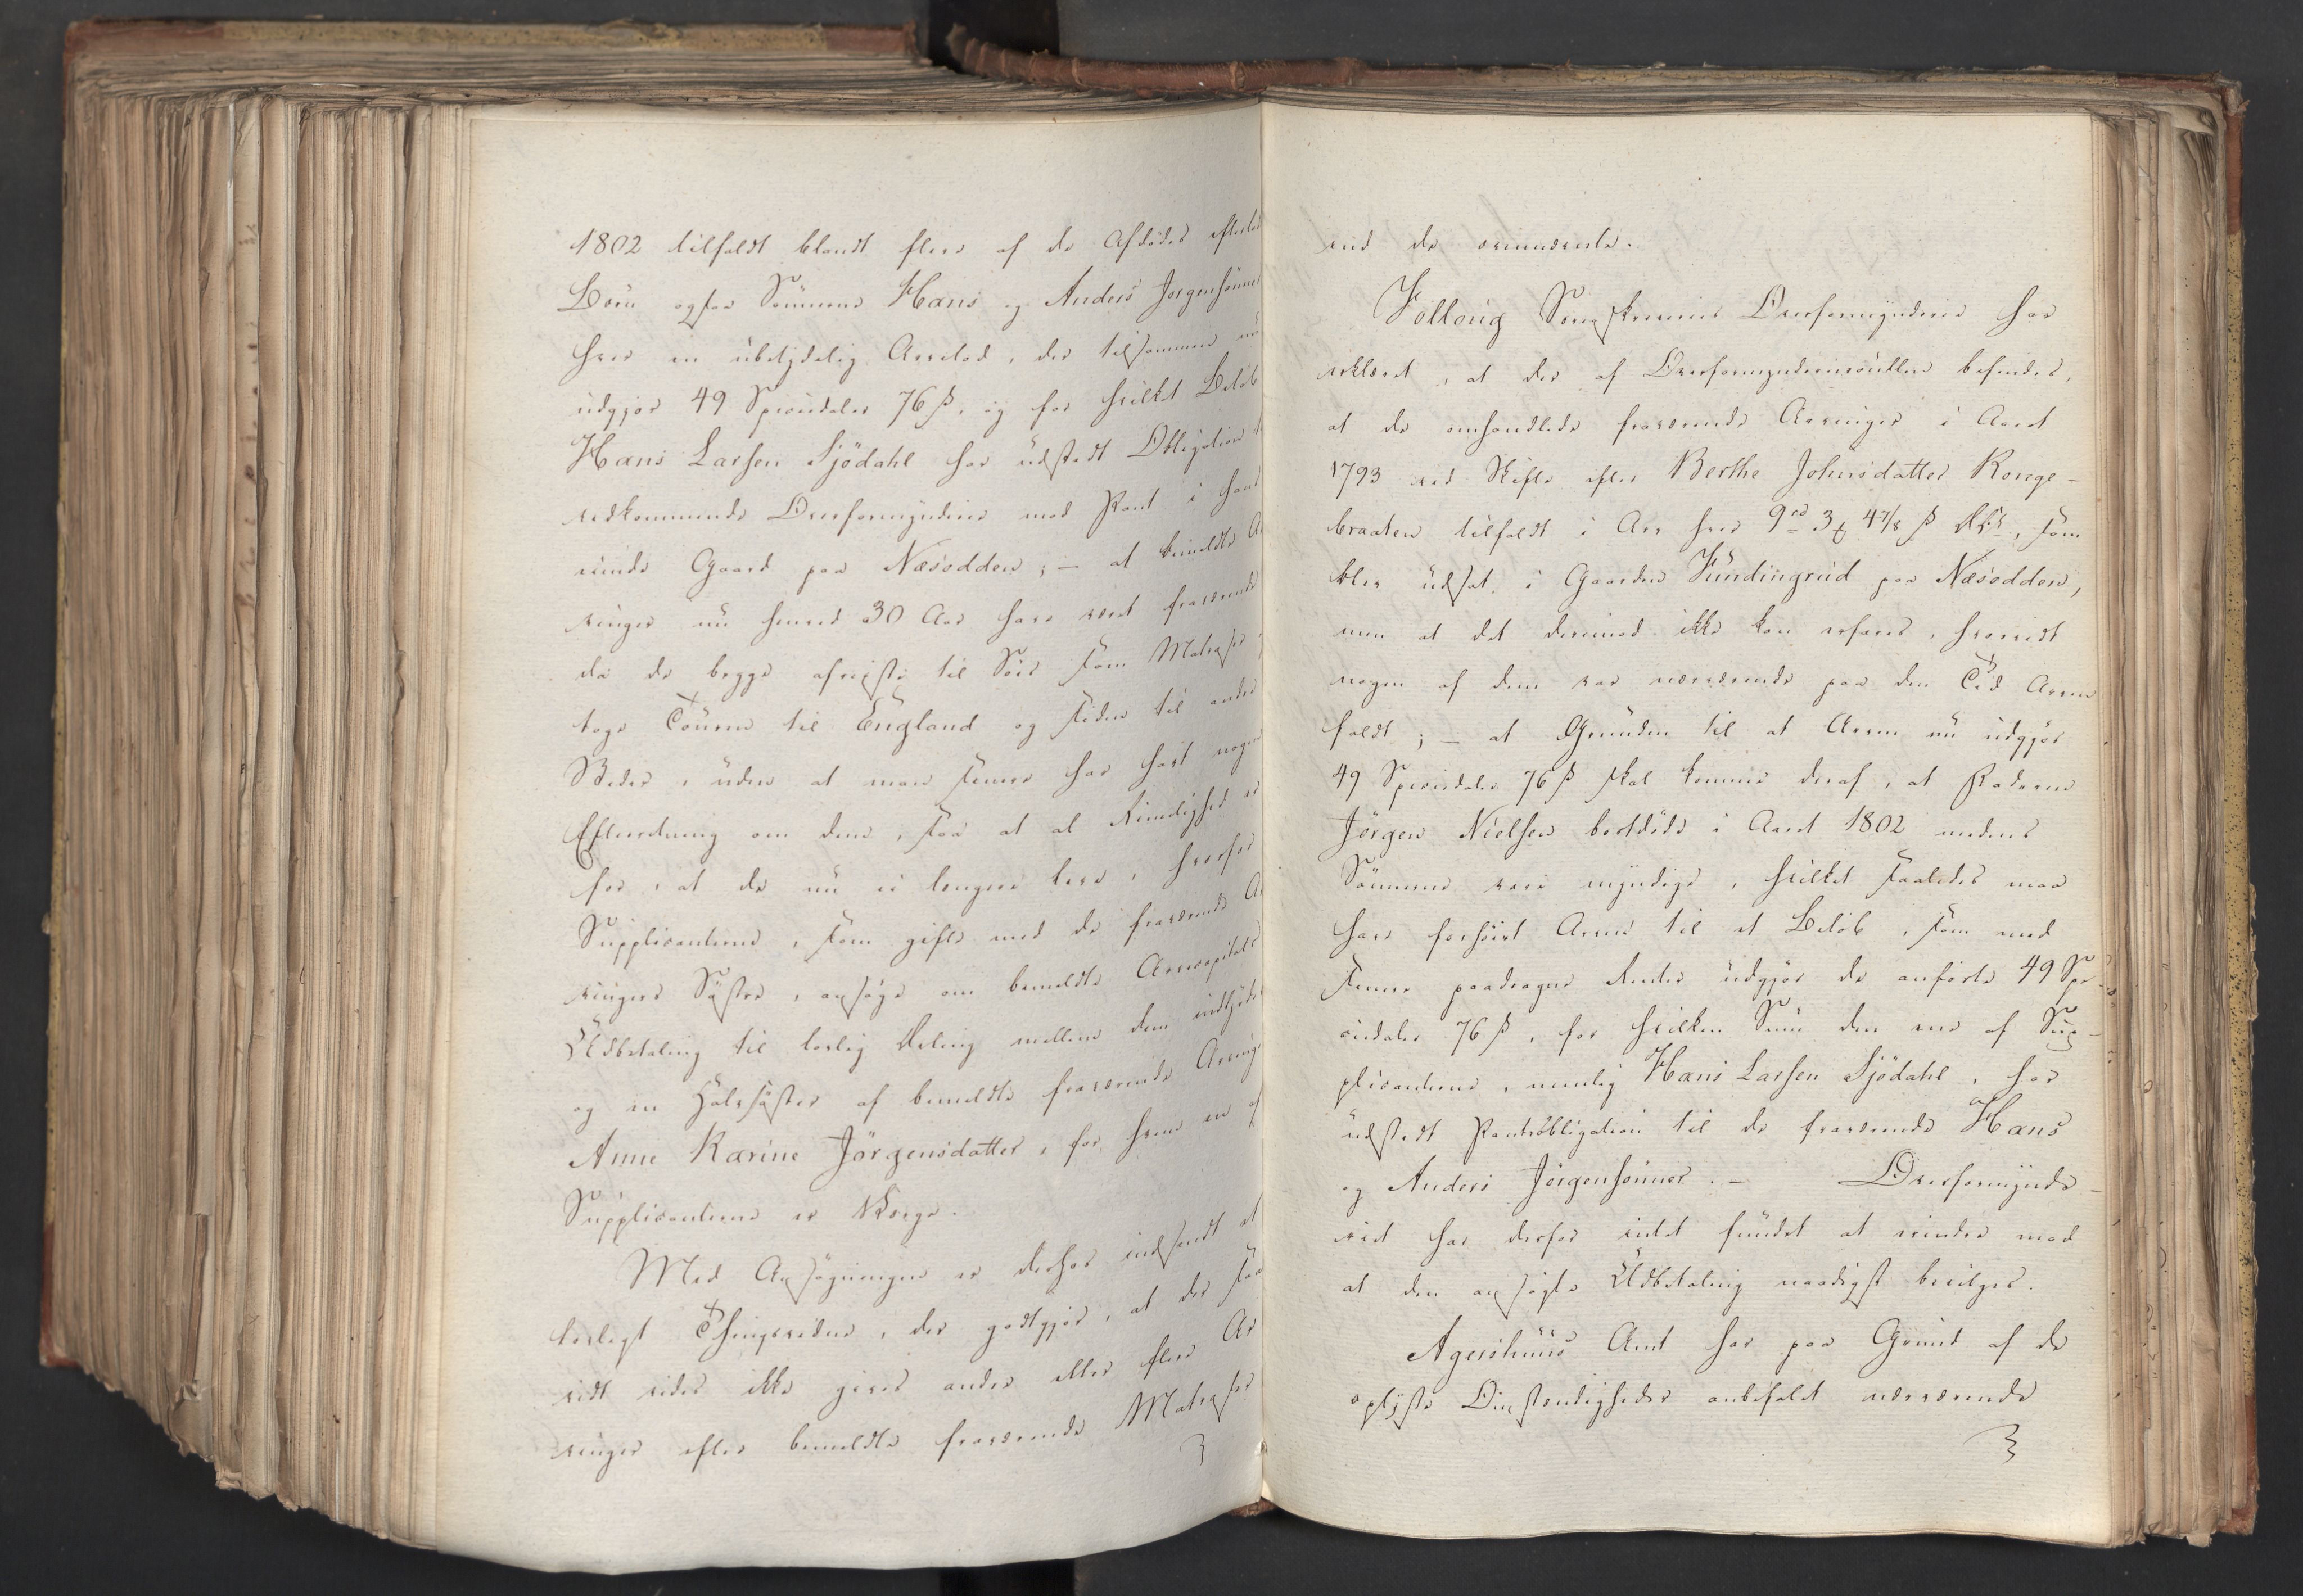 1802 tilfaldt blandt flere af de Afdødes efterla
Børn ogsaa Sønnerne Hans og Anders Jørgensønner
hver en ubetydelig Arvelod, der tilsammen nu
udgjør 49 Speciedaler 76 ß, og for hvilket Beløb
Hans Larsen Sjödahl har udstædt Obligation t
vedkommende Overformynderie mod Pant i hans
eiende Gaard paa Næsodden; – at bemeldte Ar
vinger nu henved 30 Aar have været fraværende
da de begge afreiste til Søes som Matroser,
toge Touren til England og siden til andre
Steder, uden at man senere har havt nogen
Efterretning om dem, saa at al Rimelighed er
for, at de nu ei længere leve, hvorfor
Supplicanterne, som gifte med de fraværende Ar
vingers Søstre, ansøge om bemeldte Arvecapitals
Udbetaling til lovlig Deling mellem dem indbyrdes
og en Halvsøster af bemeldte fraværende Arvinge
Anne Karine Jörgensdatter, for hvem en af
Supplicanterne er Værge.
Med Ansøgningen er derhos indsendt et
lovligt Thingsvidne, der godtgjør, at der saa
vidt vides ikke gives andre eller flere Ar
vinger efter bemeldte fraværende Matroser
end de ovennævnte.
Folloug Sorenskriveries Overformynderie har
erklæret, at der af Overformynderierullen befindes,
at de omhandlede fraværende Arvinger i Aaret
1793 ved Skifte efter Berthe Johnsdatter Korege-
braaten tilfaldt i Arv hver 9 rd 3 ₰ 4 7/8 ß D.C., som
blev udsat i Gaarden Fündingrud paa Næsodden,
men at det derimod ikke kan erfares, hvorvidt
nogen af dem var nærværende paa den Tid Arven
faldt; – at Grunden til at Arven nu udgjør
49 Speciedaler 76 ß skal komme deraf, at Faderen
Jörgen Nielsen bortdøde i Aaret 1802 medens
Sønnerne vare myndige, hvilket saaledes maa
have forhöiet Arven til et Beløb, som med
senere paadragne Renter udgjør de anførte 49 Spe-
ciedaler 76 ß, for hvilken Sum den ene af Sup-
plicanterne, nemlig Hans Larsen Sjödahl, har
udstædt Pantobligation til de fraværende Hans
og Anders Jörgensönner. – Overformynde-
riet har derfor intet fundet at erindre mod
at den ansøgte Udbetaling naadigst bevilges.
Agershuus Amt har paa Grund af de
oplyste Omstændigheder anbefalet nærværende